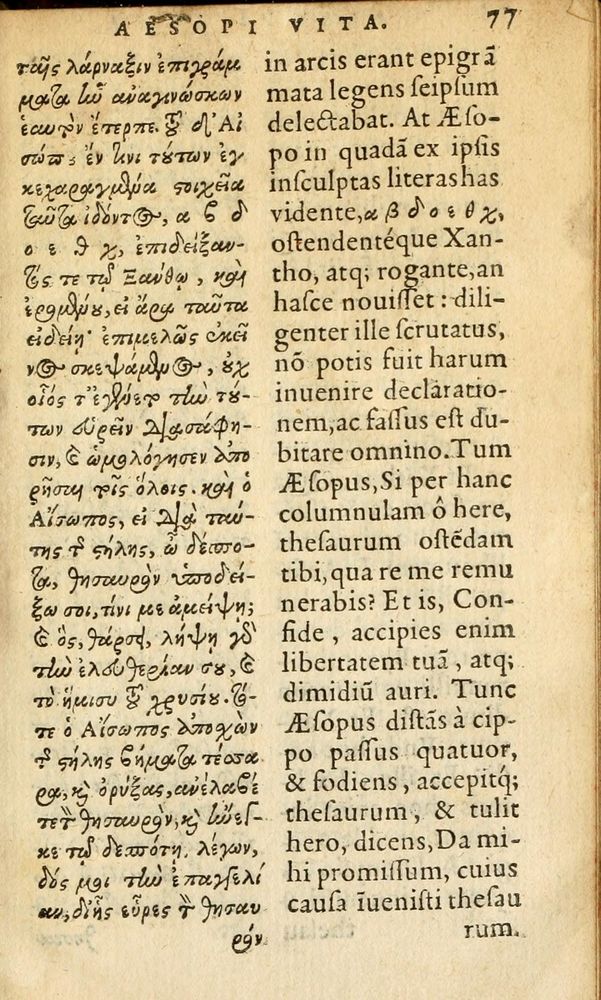 AESOPI VITA. 77
ταῖς λάρναξιν ἐπιγράμ
ματα ἦν ἀναγινώσκων
ἑαυτὸν ἔτερπε. τοῦ δ' Αἰ
σώπου ἔν τινι τούτων ἐγ
κεχαραγμένα στοιχεῖα
ταῦτα ἰδόντος, α β δ
ο ε θ χ, ἐπιδείξαν-
τός τε τῷ Ξάνθῳ, καὶ
ἐρομένου, εἰ ἄρα ταῦτα
εἰδείη· ἐπιμελῶς ἐκεῖ
νος σκεψάμενος, οὐχ
οἷός τ' ἐγένετο τὴν τού-
των εὑρεῖν διασάφη-
σιν, καὶ ὡμολόγησεν ἀπο
ρῆσαι τοῖς ὅλοις. καὶ ὁ
Αἴσωπος, εἰ διὰ ταύ-
της τῆς στήλης, ὦ δέσπο-
τα, θησαυρὸν ὑποδεί-
ξω σοι, τίνι με ἀμείψῃ;
καὶ ὅς, θάρσει, λήψῃ γὰρ
τὴν ἐλευθερίαν σου, καὶ
τὸ ἥμισυ τοῦ χρυσίου. τό-
τε ὁ Αἴσωπος ἀποχὼν
τῆς στήλης βήματα τέσσα
ρα, καὶ ὀρύξας, ἀνέλαβέ
τε τὸν θησαυρὸν, καὶ ἤνεγ-
κε τῷ δεσπότῃ, λέγων,
δός μοι τὴν ἐπαγγελί
αν, δι' ἧς εὗρες τὸν θησαυ
ρόν.
in arcis erant epigrā
mata legens seipsum
delectabat. At Æso-
po in quadā ex ipsis
insculptas literas has
vidente, α β δ ο ε θ χ,
ostendentéque Xan-
tho, atq; rogante, an
hasce nouisset : dili-
genter ille scrutatus,
nō potis fuit harum
inuenire declaratio-
nem, ac fassus est du-
bitare omnino. Tum
Æsopus, Si per hanc
columnulam ô here,
thesaurum ostēdam
tibi, qua re me remu
nerabis? Et is, Con-
fide, accipies enim
libertatem tuā, atq;
dimidiū auri. Tunc
Æsopus distās à cip-
po passus quatuor,
& fodiens, accepitq́;
thesaurum, & tulit
hero, dicens, Da mi-
hi promissum, cuius
causa īuenisti thesau
rum.